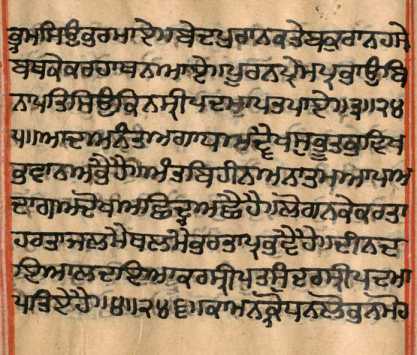 ਭ੍ਰਮਸਿਉਭਰਮਾਏ॥ਬੇਦਪੁਰਾਨਕਤੇਬਕੁਰਾਨਹਸੇ
ਬਥਕੇਕਰਹਾਥਨਆਏ॥ਪੂਰਨਪ੍ਰੇਮਪ੍ਰਭਾਉਬਿ
ਨਾਪਤਿਸਿਉਕਿਨਸ੍ਰੀਪਦਮਾਪਤਪਾਏ॥੩॥੨੪
੫॥ਆਦਅਨੰਤਅਗਾਧਅਦ੍ਵੈਖਸੁਭੂਤਭਵਿਖ
ਭਵਾਨਅਭੈਹੈ॥ਅੰਤਬਿਹੀਨਅਨਾਤਮਆਪਅ
ਦਾਗਅਦੋਖਅਛਿਦ੍ਰਅਛੈਹੈ॥ਲੋਗਨਕੇਕਰਤਾ
ਹਰਤਾਜਲਮੈਥਲਮੈਭਰਤਾਪ੍ਰਭਵੈਹੈ॥ਦੀਨਦ
ਇਆਲਦਇਆਕਰਸ੍ਰੀਪਤਸੁੰਦਰਸ੍ਰੀਪਦਮਾ
ਪਤਿਏਹੈ॥੪॥੨੪੬॥ਕਾਮਨਕ੍ਰੋਧਨਲੋਭਨਮੋਹ